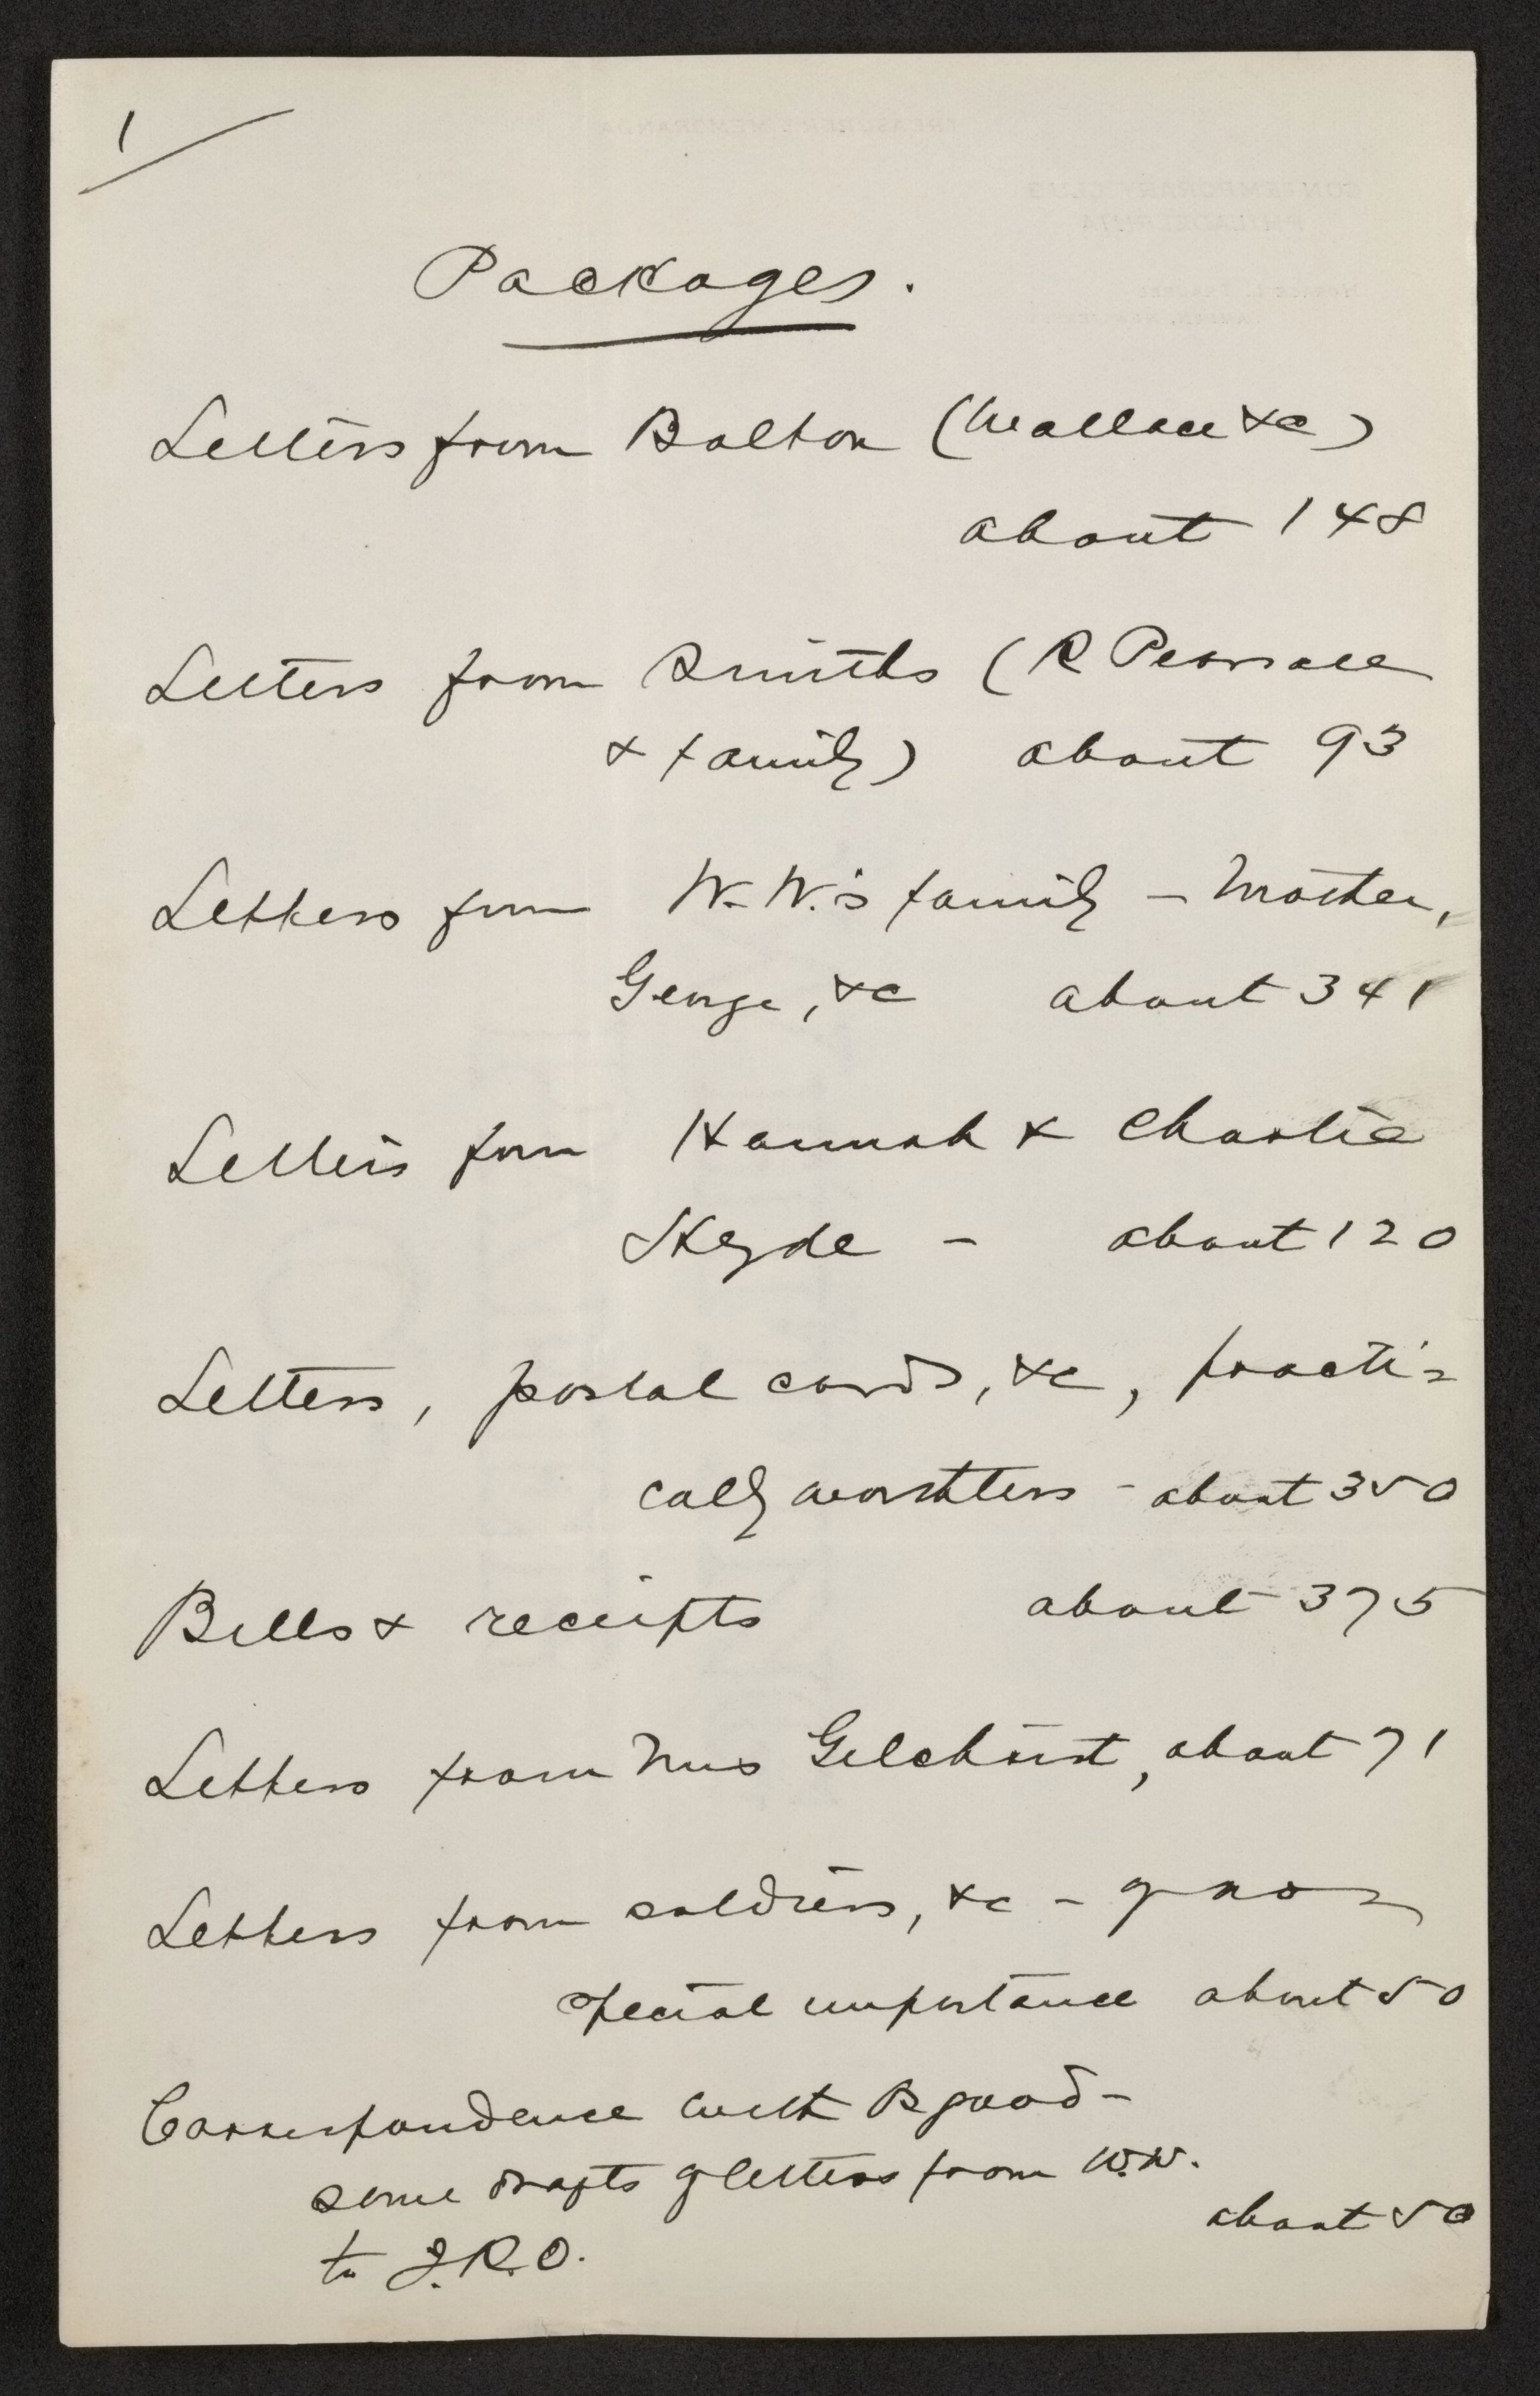 1
Packages.
Letters from Bolton (Wallace &c)
about 148
Letters from Smiths (R Pearsall
& family) about 93
Letters from W. W.'s family – Mother,
George, &c about 341
Letters from Hannah & Charlie
Heyde – about 120
Letters, postal cards, &c, practi-
cally worthless – about 350
Bills & receipts about 375
Letters from Mrs Gilchrist, about 71
Letters from soldiers, &c – of no
special importance about 50
Correspondence with Osgood –
some drafts of letters from W.W.
about 50
to J.R.O.